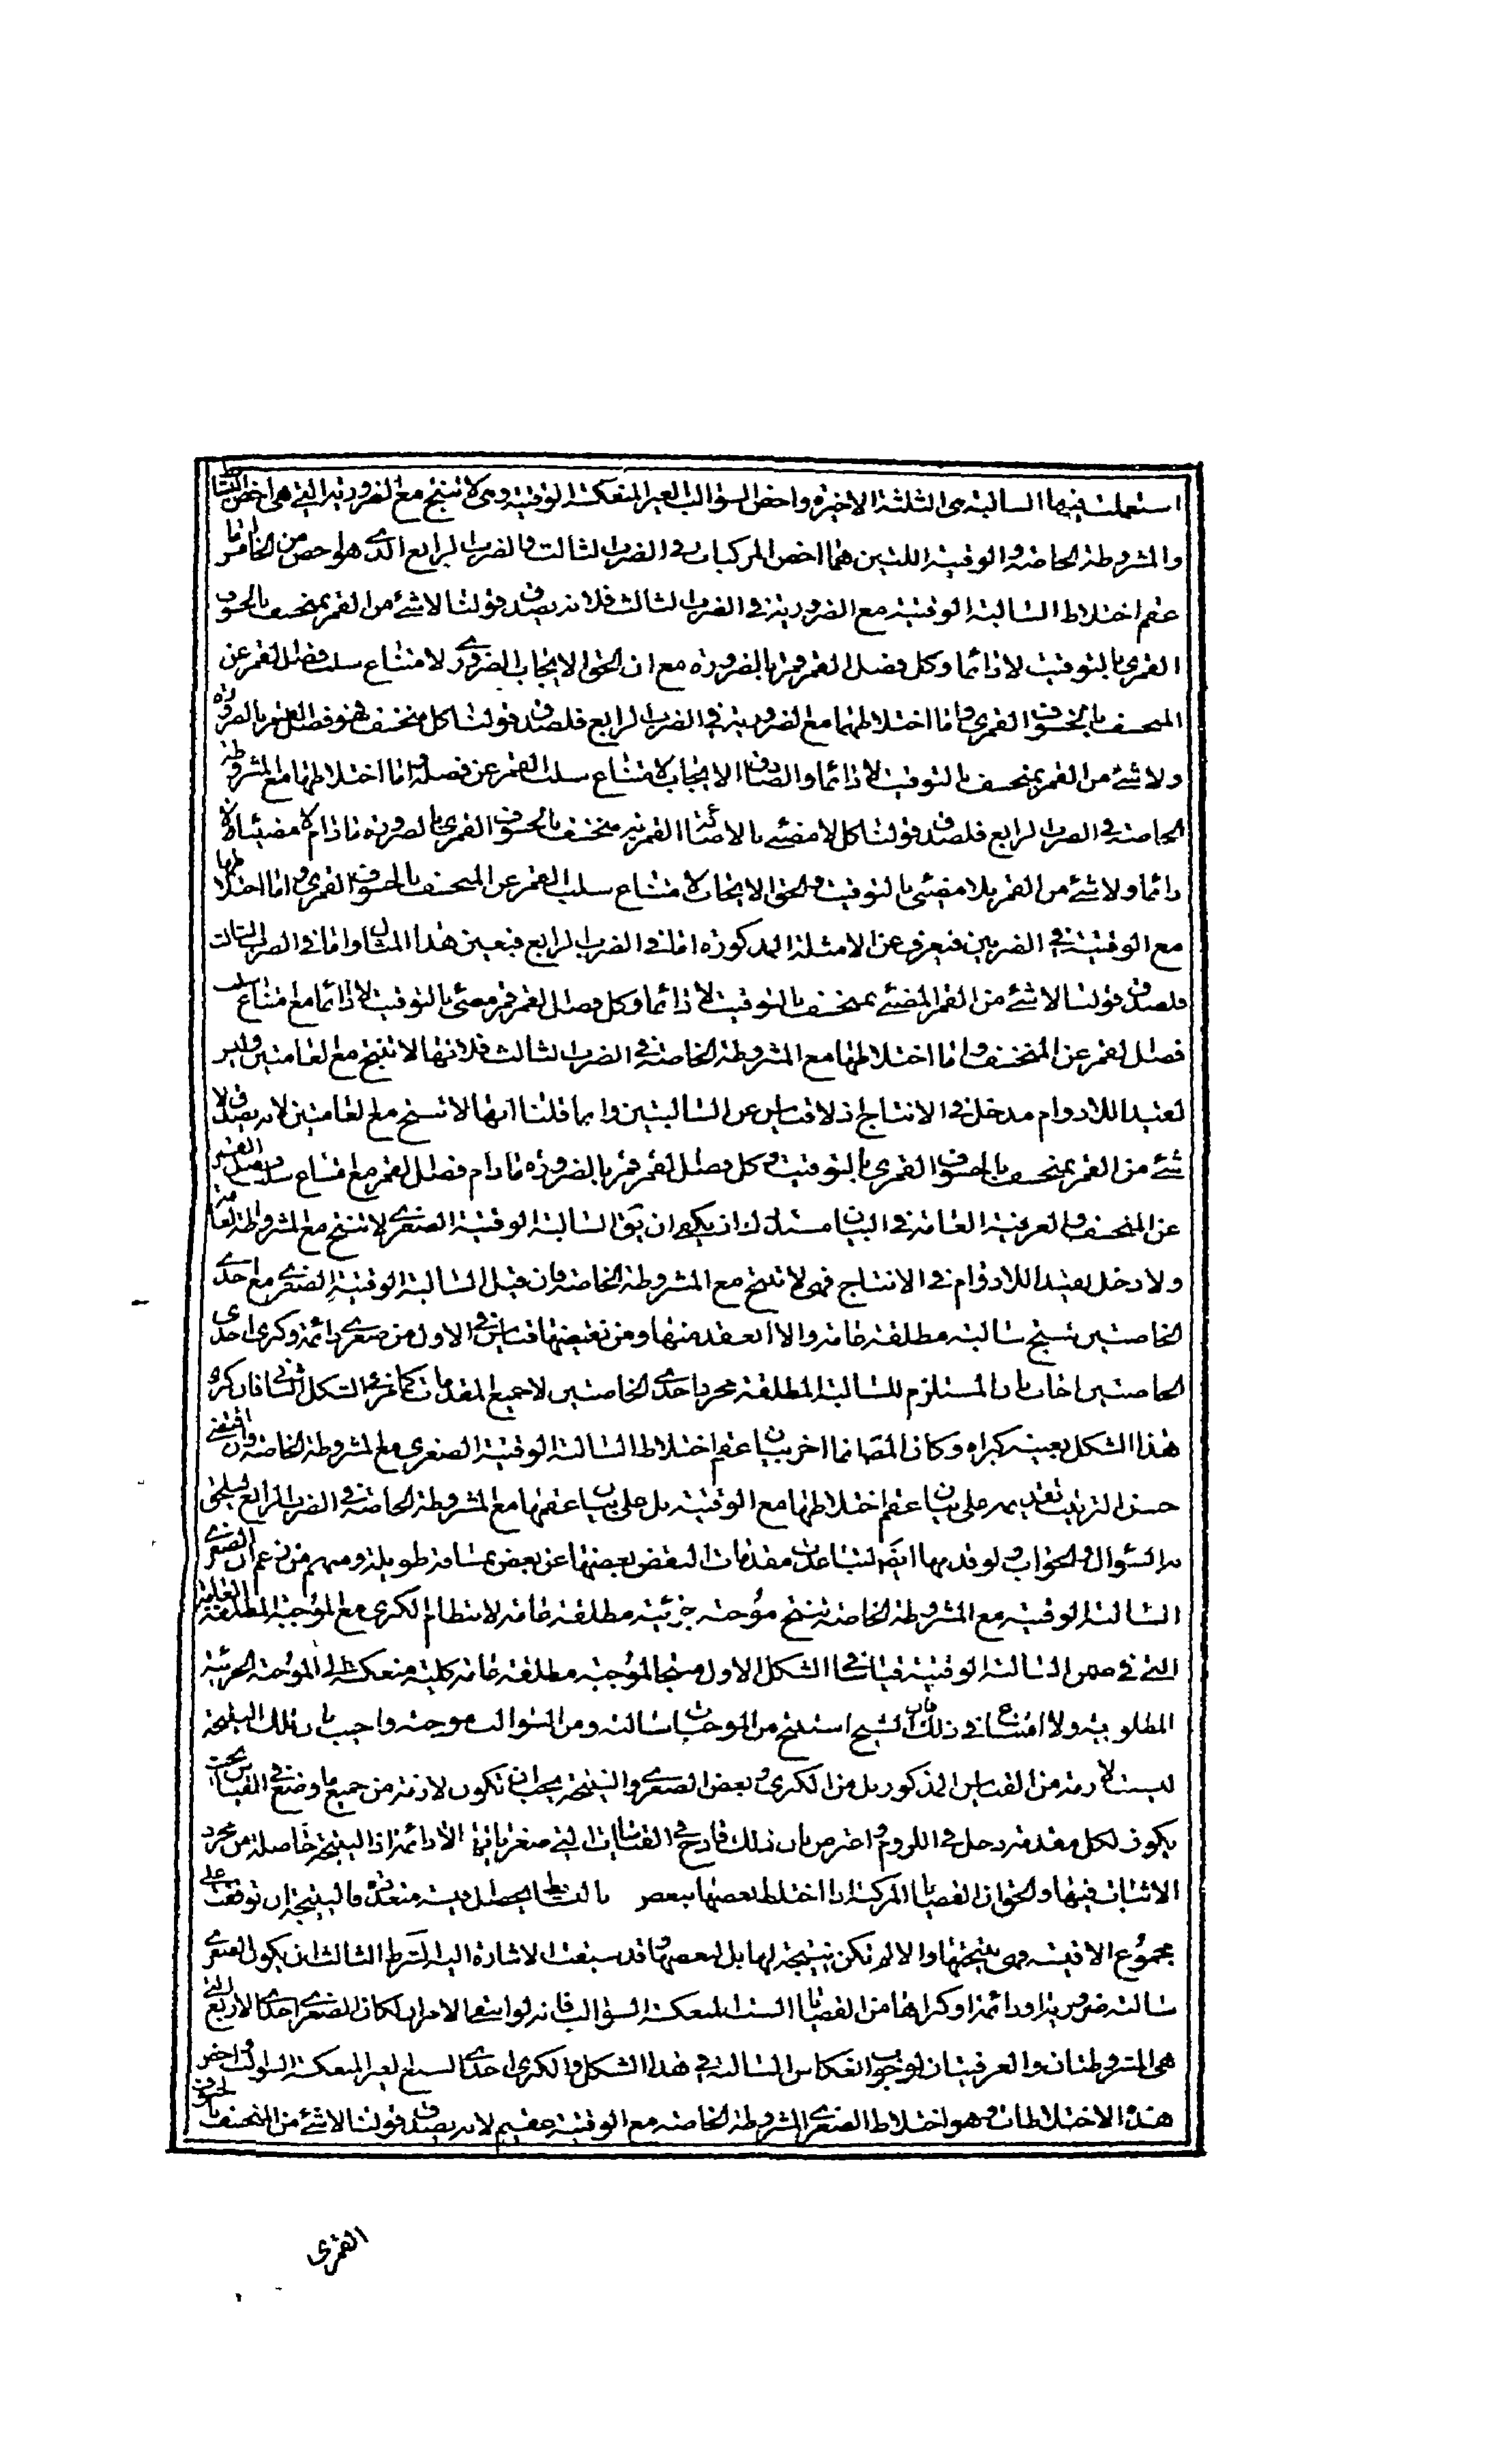 استعملت فيها السالبة هى الثلثة الاخيرة واخص السوالب الغير المنعكسة الوقتية وهى لا تنتج مع الضرورية التى هى اخص البسائط
والمشروطة الخاصة والوقتية اللتين هما اخص المركبات فى الضرب الثالث والضرب الرابع الذى هو اخص من الخامس اما
عقم اختلاط السالبة الوقتية مع الضرورية فى الضرب الثالث فلانه يصدق قولنا لا شئ من القمر بمنخسف بالخسوف
القمرى بالتوقيت لا دائما وكل فصل القمر قمر بالضرورة مع ان الحق الايجاب الضرورى لامتناع سلب فصل القمر عن
المنخسف بالخسوف القمرى واما اختلاطها مع الضرورية فى الضرب الرابع فلصدق قولنا كل منخسف فهو فصل القمر بالضرورة
ولا شئ من القمر بمنخسف بالتوقيت لا دائما والصادق الايجاب لامتناع سلب القمر عن فصله واما اختلاطها مع المشروطة
الخاصة فى الضرب الرابع فلصدق قولنا كل لا مضئ بالاضائة القمرية منخسف بالخسوف القمرى بالضرورة مادام لا مضيئا لا
دائما ولا شئ من القمر بلا مضيئ بالتوقيت والحق الايجاب لامتناع سلب القمر عن المنخسف بالخسوف القمرى واما اختلاطها
مع الوقتية فى الضربين فيعرف عن الامثلة المذكورة اما فى الضرب الرابع فبعين هذا المثال واما فى الضرب الثالث
فلصدق قولنا لا شئ من القمر المضئ بمنخسف بالتوقيت لا دائما وكل فصل القمر قمر مضئ بالتوقيت لا دائما مع امتناع سلب
فصل القمر عن المنخسف واما اختلاطها مع المشروطة الخاصة فى الضرب الثالث فلانها لا تنتج مع العامتين وليس
لقيد اللادوام مدخل فى الانتاج اذ لا قياس عن السالبتين وانما قلنا انها لا تنتج مع العامتين لانه يصدق لا
شئ من القمر بمنخسف بالخسوف القمرى بالتوقيت وكل فصل القمر قمر بالضرورة مادام فصل القمر مع امتناع سلب فصل القمر
عن المنخسف والعرفية العامة فى البيان مستدرك اذ يكفى ان يق السالبة الوقتية الصغرى لا تنتج مع المشروطة العامة
ولا دخل لقيد اللادوام فى الانتاج فهى لا تنتج مع المشروطة الخاصة فان قيل السالبة الوقتية الصغرى مع احدى
الخاصتين تنتج سالبة مطلقة عامة والا انعقد منها ومن نقيضها قياس فى الاول من صغرى دائمة وكبرى احدى
الخاصتين اجاب بان المستلزم للسالبة المطلقة مجرد احدى الخاصتين لا جميع المقدمات كما عرف فى الشكل الثانى فان كبرى
هذا الشكل بعينه كبراه وكان المص انما اخر بيان عقم اختلاط السالبة الوقتية الصغرى مع المشروطة الخاصة وان اقتضى
حسن الترتيب تقديمه على بيان عقم اختلاطها مع الوقتية بل على بيان عقمها مع المشروطة الخاصة فى الضرب الرابع ليلحق
به السؤال والجواب ولو قدمها ايض لتباعدت مقدمات البعض بعضها عن بعض بمسافة طويلة ومنهم من زعم ان الصغرى
السالبة الوقتية مع المشروطة الخاصة تنتج موجبة جزئية مطلقة عامة لانتظام الكبرى مع الموجبة المطلقة العامة
التى فى ضمن السالبة الوقتية قياسا فى الشكل الاول منتجا لموجبة مطلقة عامة كلية منعكسة الى الموجبة الجزئية
المطلوبة ولا امتناع فى ذلك فان الشيخ استنتج من الموجبات سالبة ومن السوالب موجبة واجيب بان تلك النتيجة
ليست لازمة من القياس المذكور بل من الكبرى وبعض الصغرى والنتيجة يجب ان تكون لازمة من جميع ما وضع فى القياس بحيث
يكون لكل مقدمة دخل فى اللزوم واعترض بان ذلك قادح فى القياسات التى صغرياتها لا دائمة اذ النتيجة حاصلة من مجرد
الاثبات فيها والحق ان القضايا المركبة اذا اختلط بعضها ببعض بالبسائط يحصل اقيسة متعددة فالنتيجة ان توقفت على
مجموع الاقيسة فهى نتيجتها والا لم تكن نتيجة لها بل لبعضها وقد سبقت الاشارة اليه الشرط الثالث ان يكون الصغرى
سالبة ضرورية او دائمة او كبراها من القضايا الست المنعكسة السوالب فانه لو انتفى الامران لكان الصغرى احدى الاربع التى
هى المشروطتان والعرفيتان لوجوب انعكاس السالبة فى هذا الشكل والكبرى احدى السبع الغير المنعكسة السوالب واخص
هذه الاختلاطات وهو اختلاط الصغرى المشروطة الخاصة مع الوقتية عقيم لانه يصدق قولنا لا شئ من المنخسف بالخسوف
القمرى